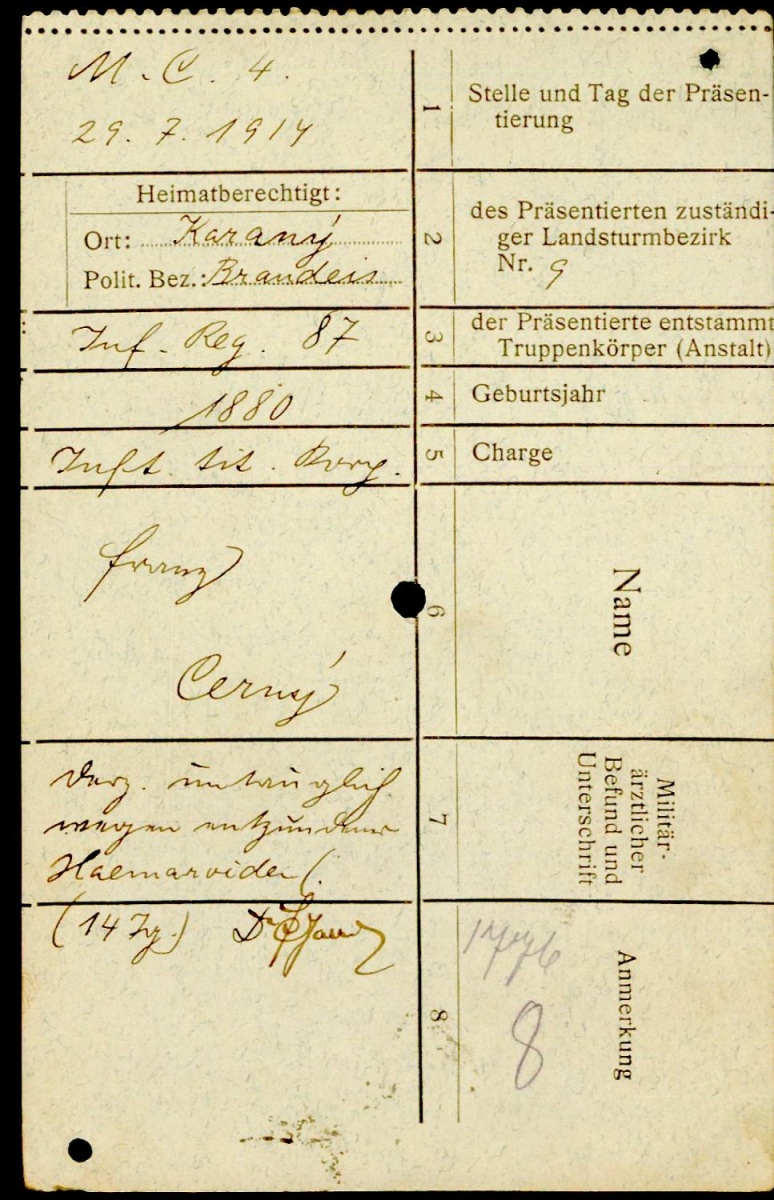 M. C. 4.
29. 7. 1914
1
Stelle und Tag der Präsen-
tierung
Heimatberechtigt:
Ort: Karaný
Polit. Bez.: Brandeis
2
des Präsentierten zuständi-
ger Landsturmbezirk
Nr. 9
Inf. Reg. 87
3
der Präsentierte entstammt
Truppenkörper (Anstalt)
1880
4
Geburtsjahr
Inft. tit.
5
Charge
Franz
Cerný
6
Name
derz. untauglich
wegen entzündener
Haemoroiden
7
Militär-
ärztlicher
Befund und
Unterschrift
(14 Tg.) Dr
8
Anmerkung
8